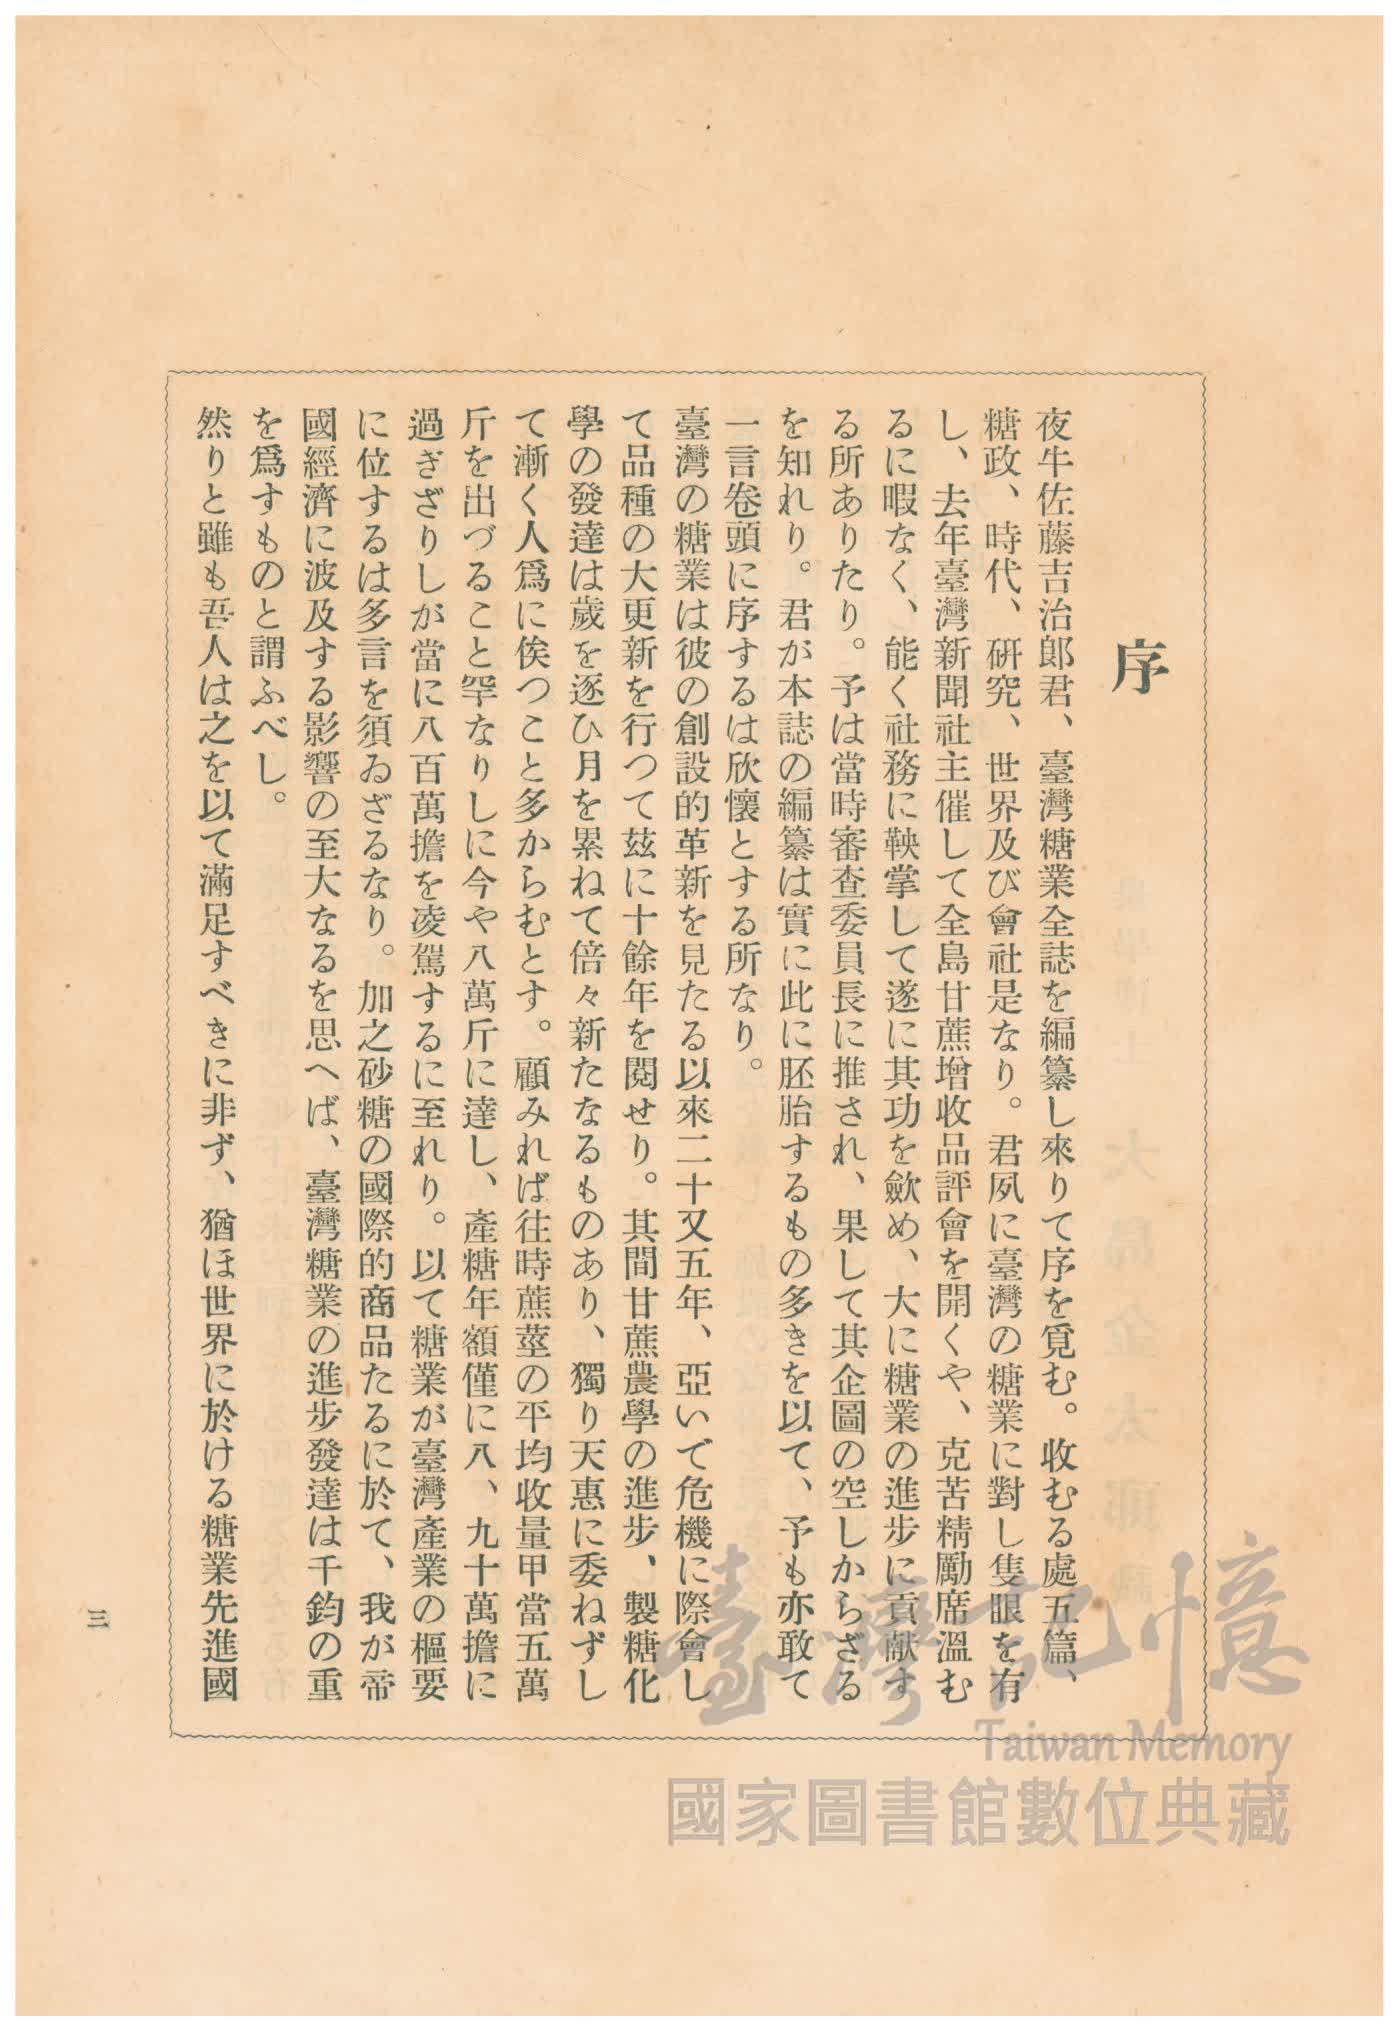 序
夜牛佐藤吉治郎君、臺灣糖業全誌を編纂し來りて序を覓む。收むる處五篇、
糖政、時代、研究、世界及び會社是なり。君夙に臺灣の糖業に對し隻眼を有
し、去年臺灣新聞社主催して全島甘蔗增收品評會を開くや、克苦精勵席溫む
るに暇なく、能く社務に鞅掌して遂に其功を歛め、大に糖業の進步に貢献す
る所ありたり。予は當時審查委員長に推され、果して其企圖の空しからざる
を知れり。君が本誌の編纂は實に此に胚胎するもの多きを以て、予も亦敢て
一言卷頭に序するは欣懷とする所なり。
臺灣の糖業は彼の創設的革新を見たる以來二十又五年、亞いで危機に際會し
て品種の大更新を行つて茲に十餘年を閱せり。其間甘蔗農學の進步、製糖化
學の發達は歲を逐ひ月を累ねて倍々新たなるものあり、獨り天惠に委ねずし
て漸く人爲に俟つこと多からむとす。顧みれば往時蔗莖の平均收量甲當五萬
斤を出づること罕なりしに今や八萬斤に達し、產糖年額僅に八、九十萬擔に
過ぎざりしが當に八百萬擔を凌駕するに至れり。以て糖業が臺灣產業の樞要
に位するは多言を須ゐざるなり。加之砂糖の國際的商品たるに於て、我が帝
國經濟に波及する影響の至大なるを思へば、臺灣糖業の進步發達は千鈞の重
を爲すものと謂ふべし。
然りと雖も吾人は之を以て滿足すべきに非ず、猶ほ世界に於ける糖業先進國
三
臺灣記憶
Taiwan Memory
國家圖書館數位典藏